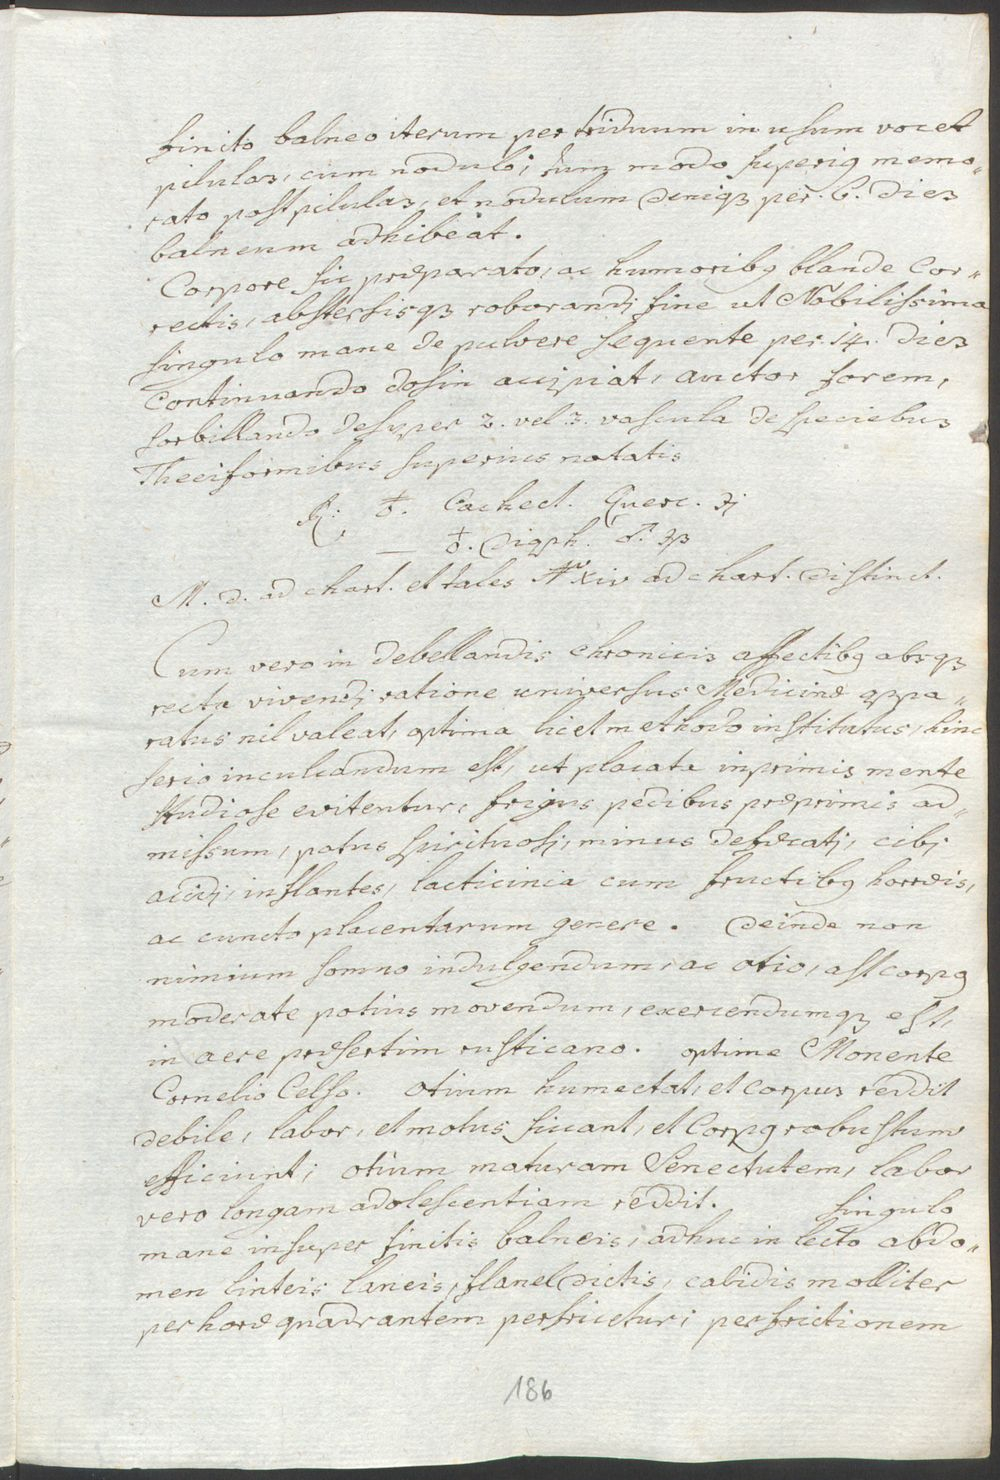 finito balneo iterum per triduum in usum vocet
pilulas, cum nodulo; tum modo superiq memo„
rato post pilulas, et nodulum deniqȝ per. 6. dies
balneum adhibeat.
Corpore sic præparato, ac humoribq blande Cor„
rectis, abstersisqȝ roborandi fine ut Nobilissima
singulo mane de pulvere sequente per. 14. dies
Continuando dosin accipiat, auctor forem,
sorbillando desuper 2. vel 3. vascula de speciebus
Theeiformibus superius notatis
℞: ♁. Cachect. Querc. ℈j
— ♁. Diaph. ♂. ℈β
M. d. ad chart. et tales Nro xiv ad chart. distinct.
Cum vero in debellandis chronicis affectibq absqȝ
recta vivendi ratione universus Medicinæ appa„
ratus nil valeat, optima licet methodo institutus, hinc
serio inculcandum est, ut placata inprimis mente
studiose evitentur, frigus pedibus præprimis ad„
missum, potus spirituosi, minus defæcati, cibi
acidi, inflantes, lacticinia cum fructibq horæis,
ac cuncto placentarum genere. Deinde non
nimium somno indulgendum, ac otio, ast corpq
moderate potius movendum, exercendumqȝ est,
in aere præsertim rusticano. optime Monente
Cornelio Celso. Otium humectat, et corpus reddit
debile, labor, et motus siccant, et Corpq robustum
efficiunt; otium maturam Senectutem, labor
vero longam adolescentiam reddit. Singulo
mane insuper finitis balneis, adhuc in lecto abdo„
men linteis laneis, flanel dictis, calidis molliter
per horæ quadrantem perfricetur; per frictionem
186